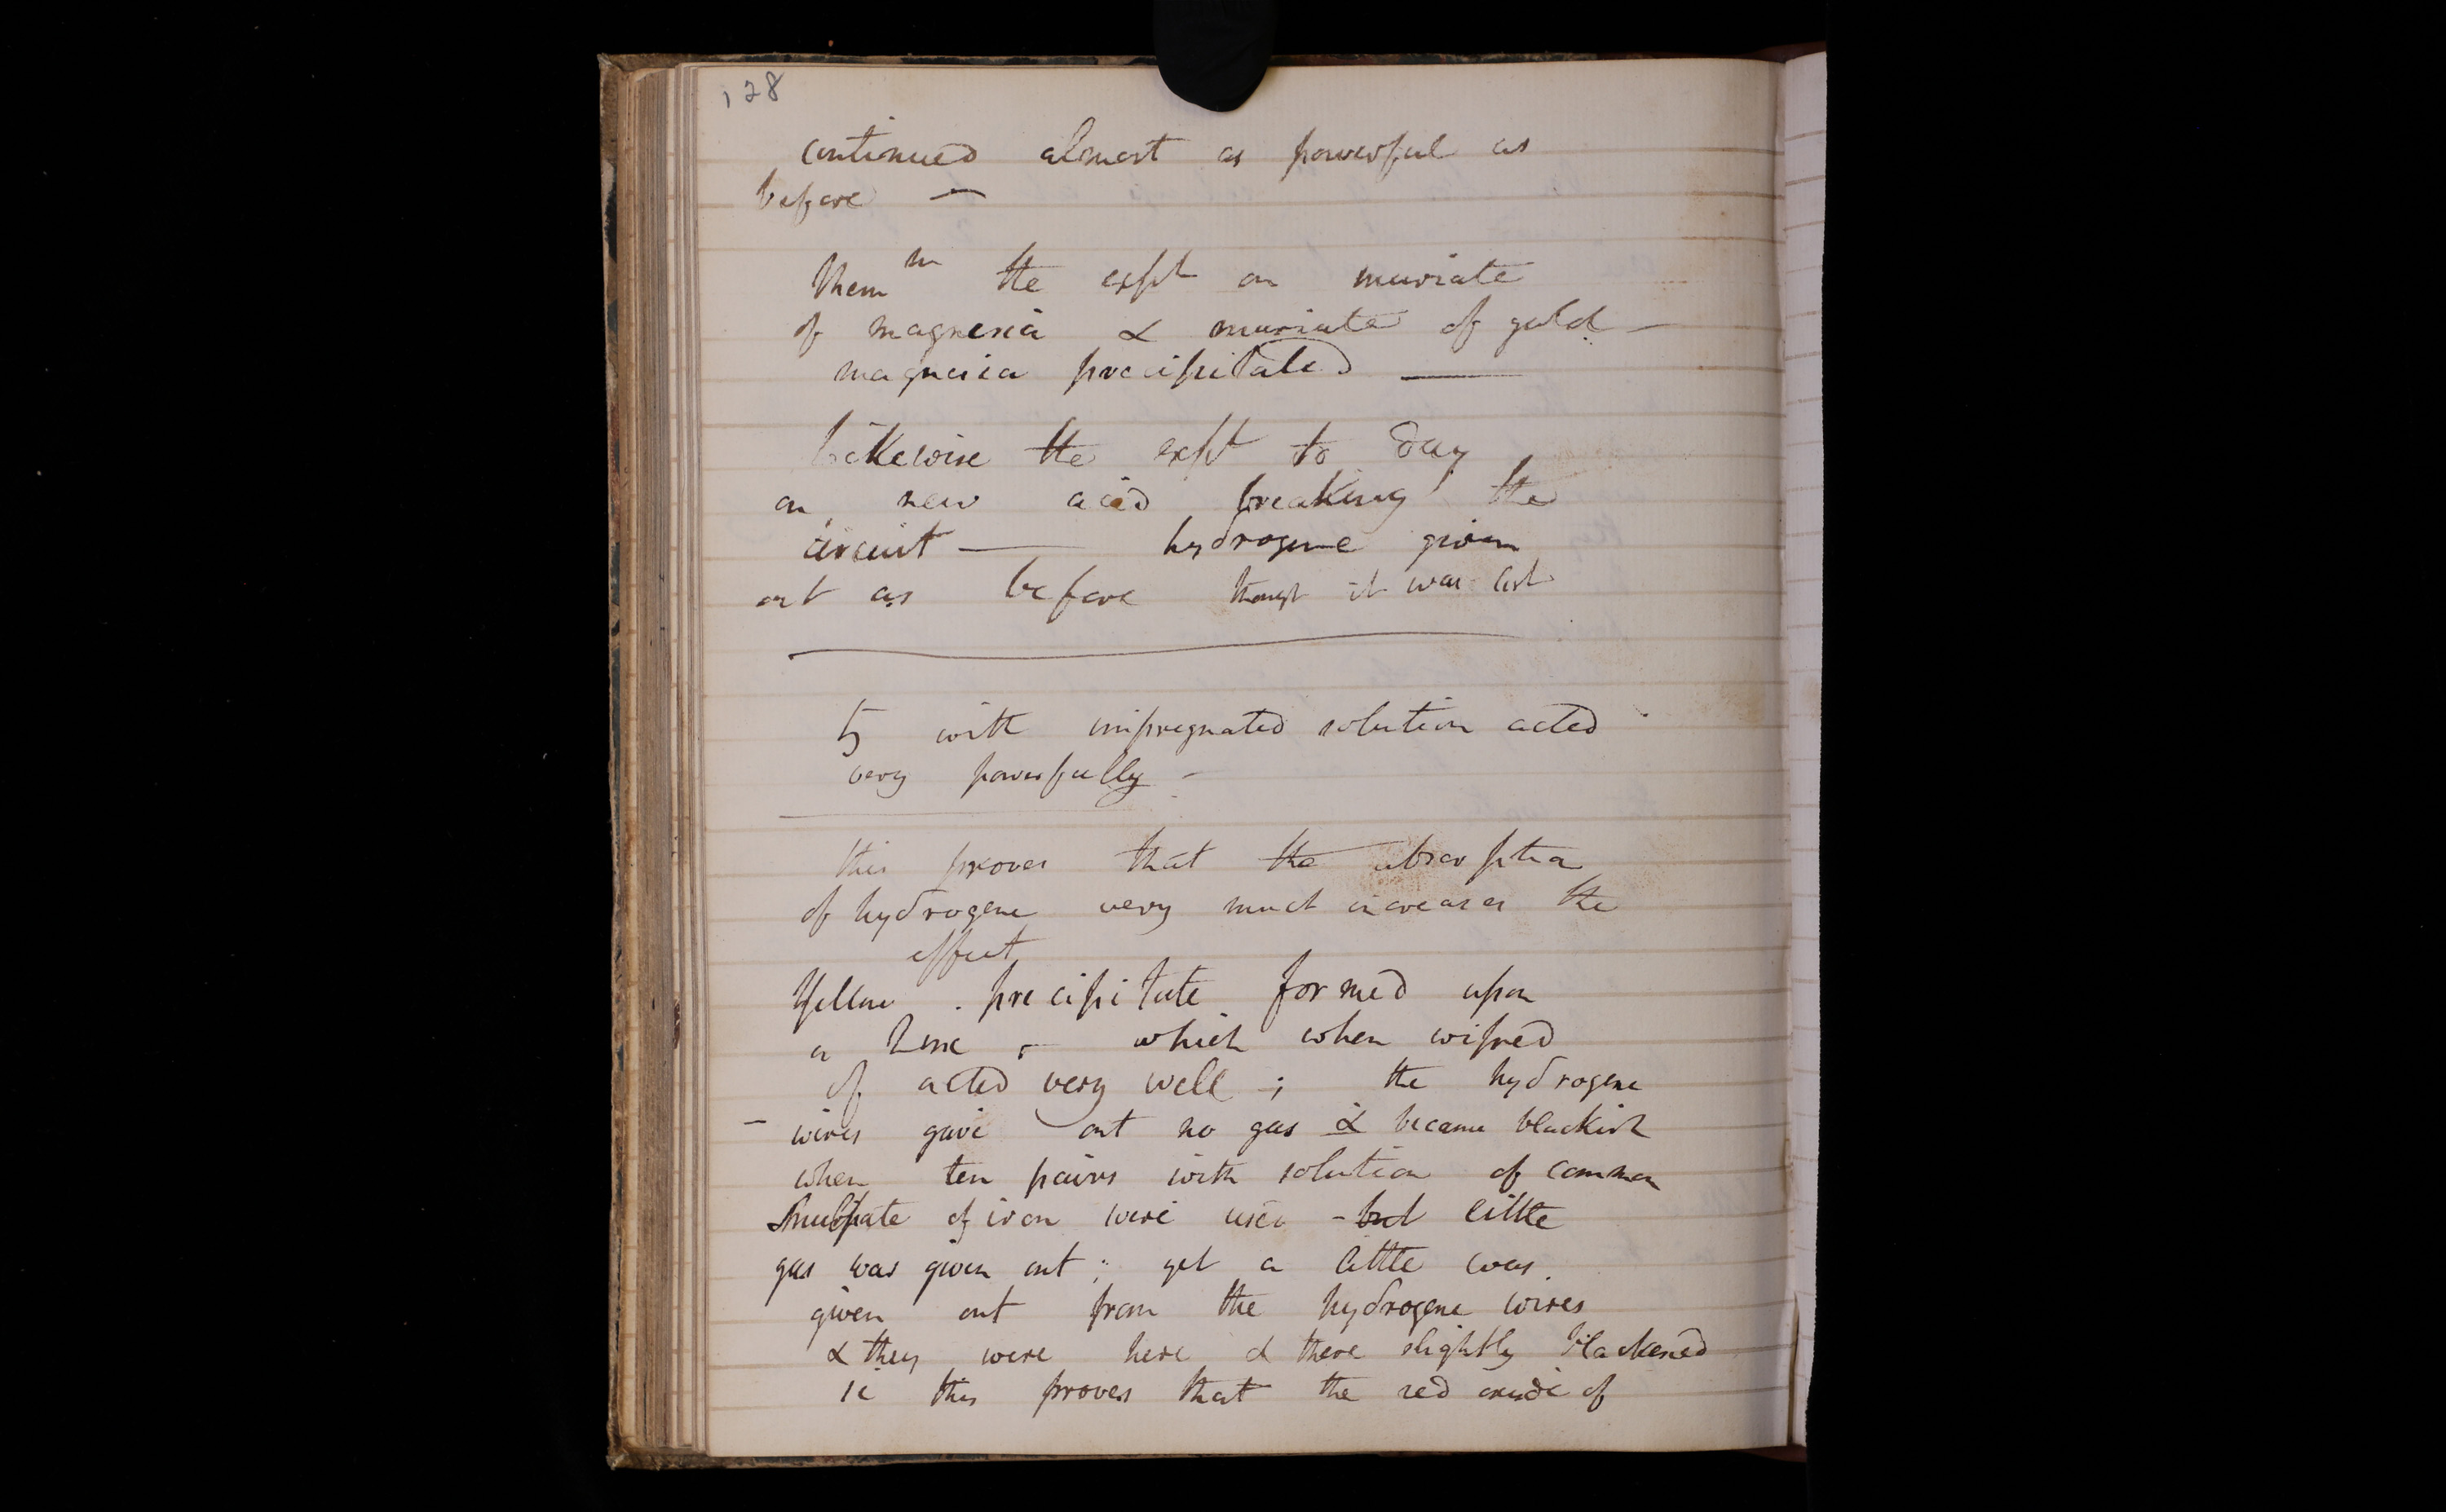 128
continued almost as powerful as
before —
Mem m the expt on muriate
of magnesia & muriate of gold —
magnesia precipitated —
Likewise the expt to day
on new acid breaking the
circuit — hydrogene given
out as before though it was lost
5 with impregnated solution acted
very powerfully –
this proves that the absorption
of hydrogene very much increases the
effect
Yellow precipitate formed upon
a Zinc – which when wiped
of acted very well ; the hydrogene
– wires gave out no gas & became blackish
when ten pairs with solution of common
Sulphate of iron were used – but little
gas was given out ; yet a little was
given out from the hydrogene wires
& they were here & there slightly blackened
this proves that the red oxide of